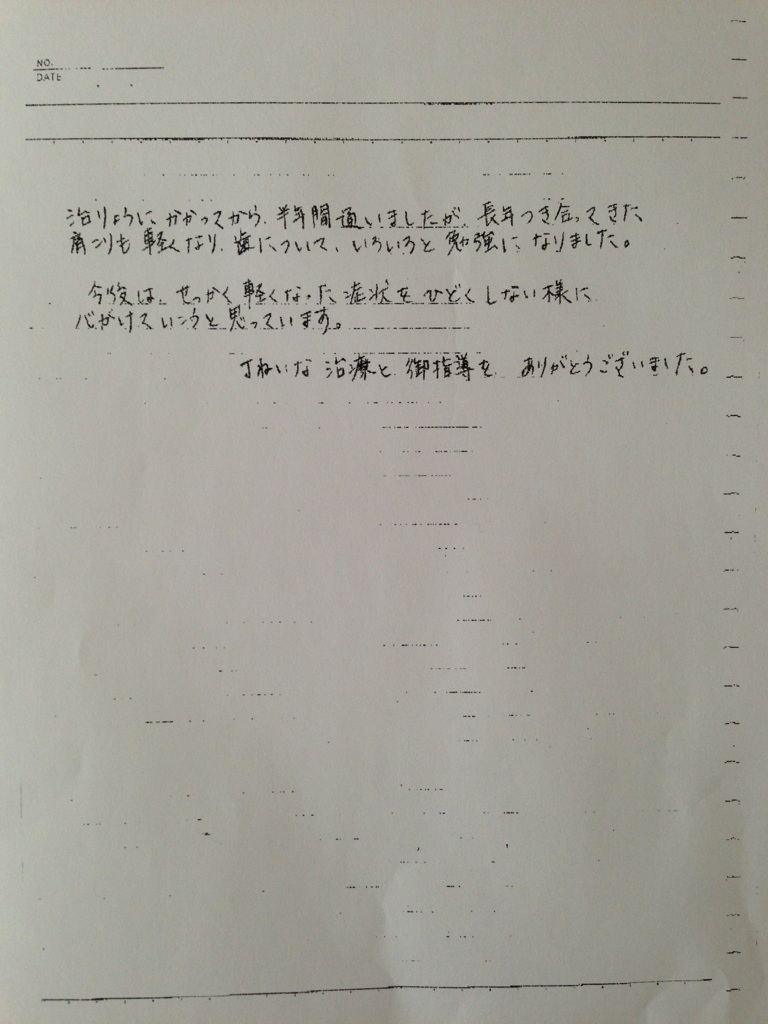 NO.
DATE
治りょうにかかってから、半年間通いましたが、長年つき合ってきた
肩こりも軽くなり、歯について、いろいろと勉強になりました。
今後は、せっかく軽くなった症状をひどくしない様に
心がけていこうと思っています。
丁ねいな治療と御指導を、ありがとうございました。